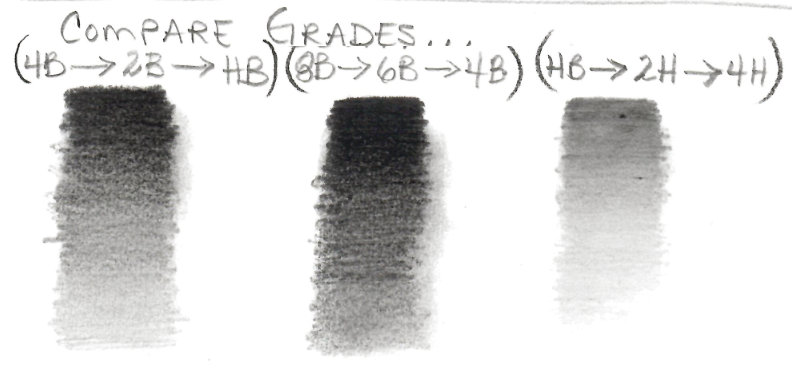 COMPARE GRADES...
(4B→2B→HB) (8B→6B→4B) (HB→2H→4H)